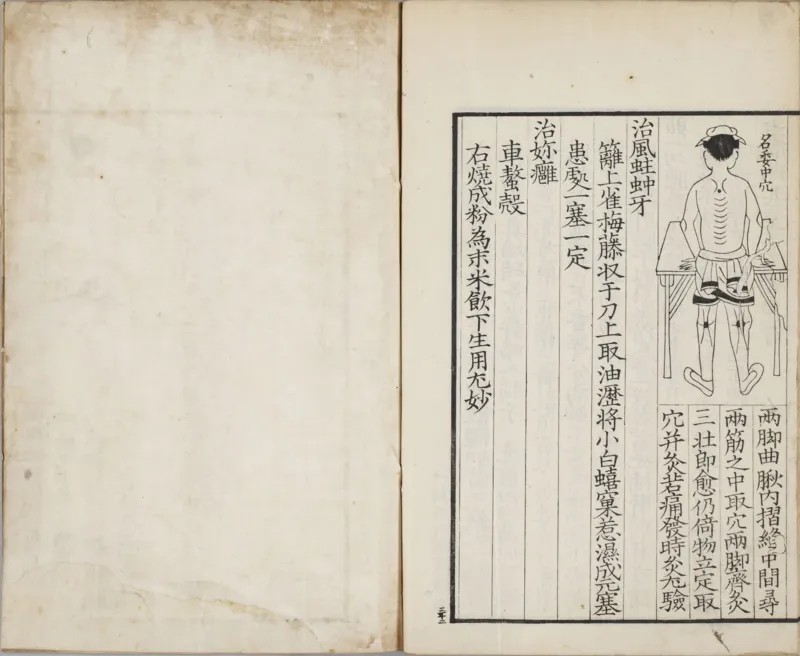 名委中穴
両脚曲𬛸内摺縫中間尋
両筋之中取穴両脚齊灸
三壮即愈仍倚物立定取
穴并灸若痛發時灸尤驗
治風蛀蚛牙
籬上雀梅藤収于刀上取油瀝将小白蟢窠惹濕成丸塞
患処一塞一定
治妳癰
車螯殻
右燒成粉為末米飲下生用尤妙